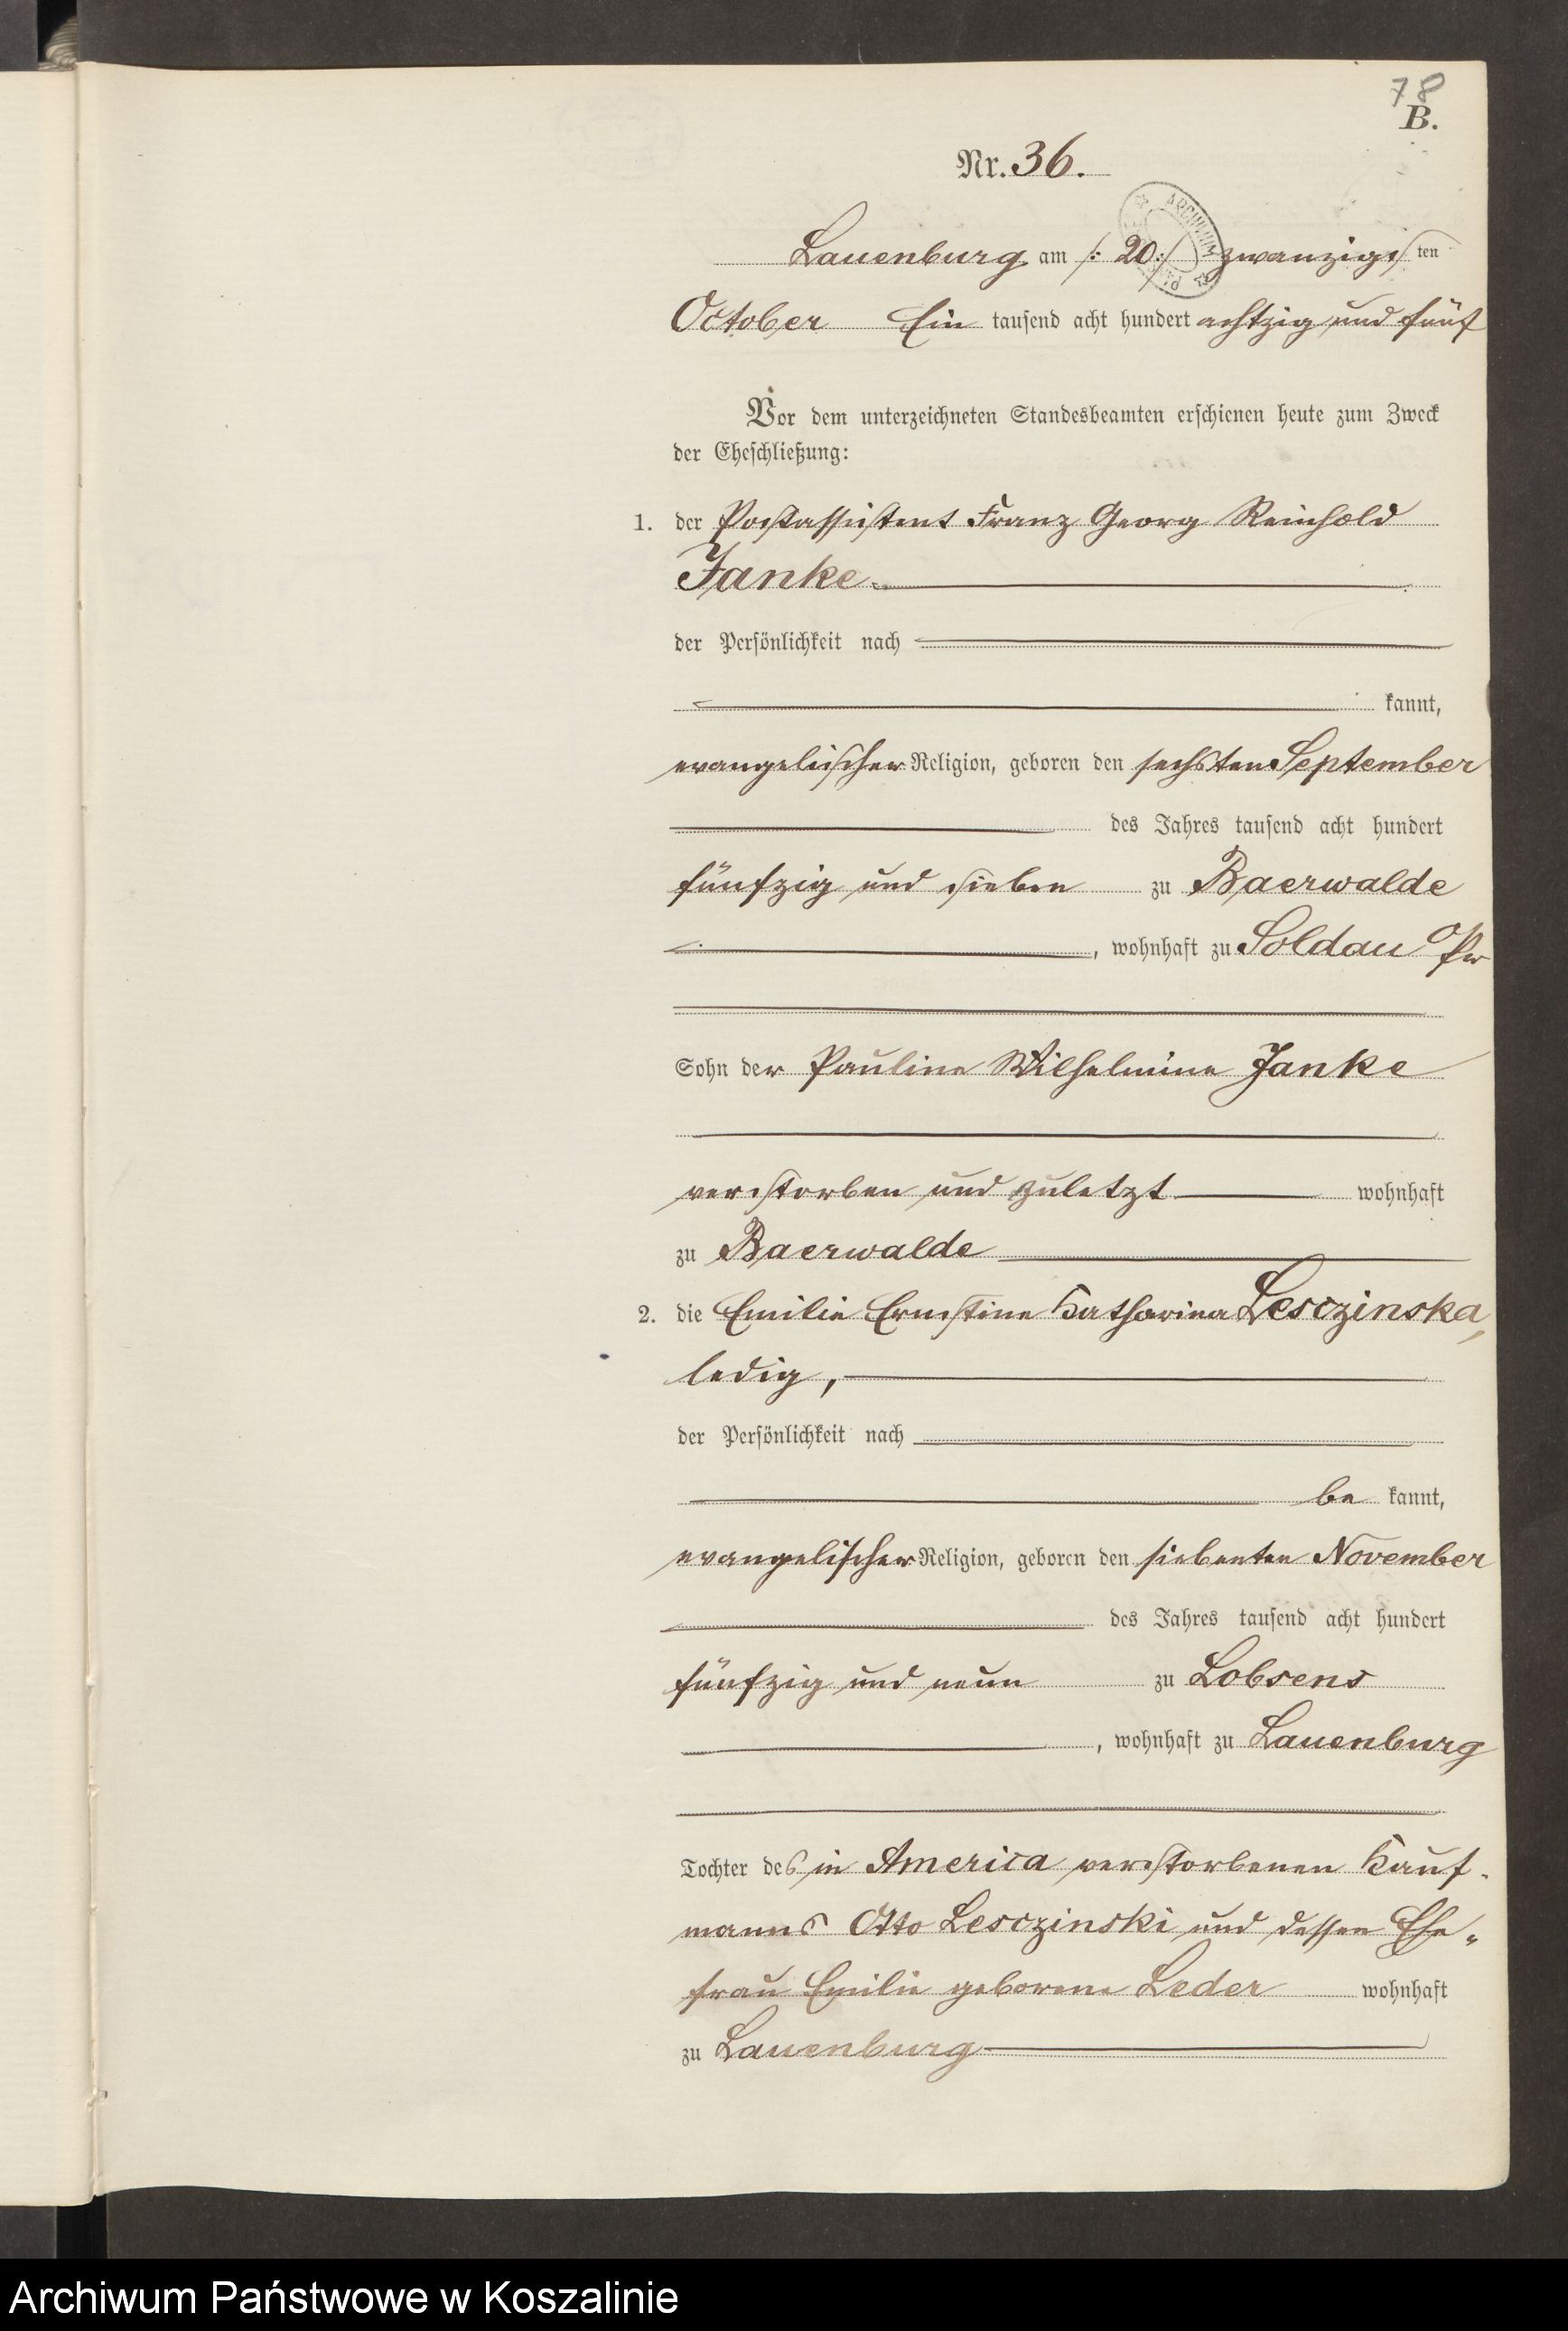 78
B.
Nr. 36.
Lauenburg am /: 20 :/ zwanzigsten
October Ein tausend acht hundert achtzig und fünf
Vor dem unterzeichneten Standesbeamten erschienen heute zum Zweck
der Eheschließung:
1. der Postassistent Franz Georg Reinhold
Janke
der Persönlichkeit nach
kannt,
evangelischer Religion, geboren den sechsten September
des Jahres tausend acht hundert
fünfzig und sieben zu Baerwalde
, wohnhaft zu Soldau O/Pr
Sohn der Pauline Wilhelmine Janke
verstorben und zuletzt wohnhaft
zu Baerwalde
2. die Emilie Ernestine Katharina Lesczinska,
ledig,
der Persönlichkeit nach
be kannt,
evangelischer Religion, geboren den siebenten November
des Jahres tausend acht hundert
fünfzig und neun zu Lobsens
, wohnhaft zu Lauenburg
Tochter des in America verstorbenen Kauf-
manns Otto Lesczinski und dessen Ehe-
frau Emilie geborene Leder wohnhaft
zu Lauenburg
Archiwum Państwowe w Koszalinie